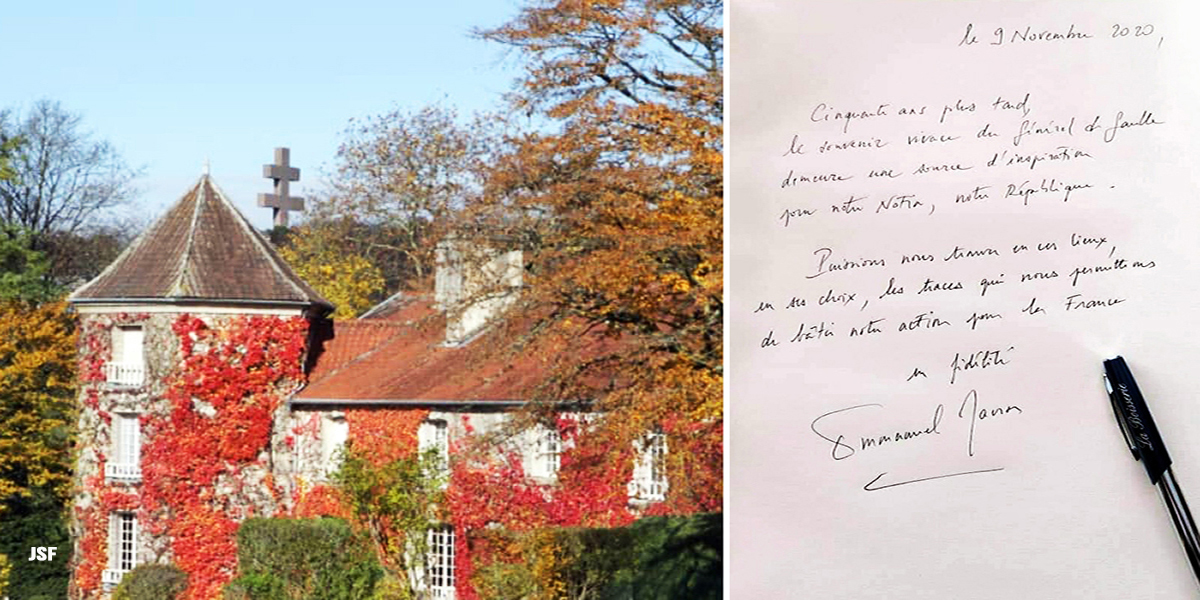 JSF
le 9 Novembre 2020,
Cinquante ans plus tard,
le souvenir vivace du Général de Gaulle
demeure une source d'inspiration
pour notre Nation, notre République.
Puissions nous trouver en ces lieux,
en ses choix, les traces qui nous permettrons
de bâtir notre action pour la France
en fidélité
Emmanuel Macron
La Boisserie